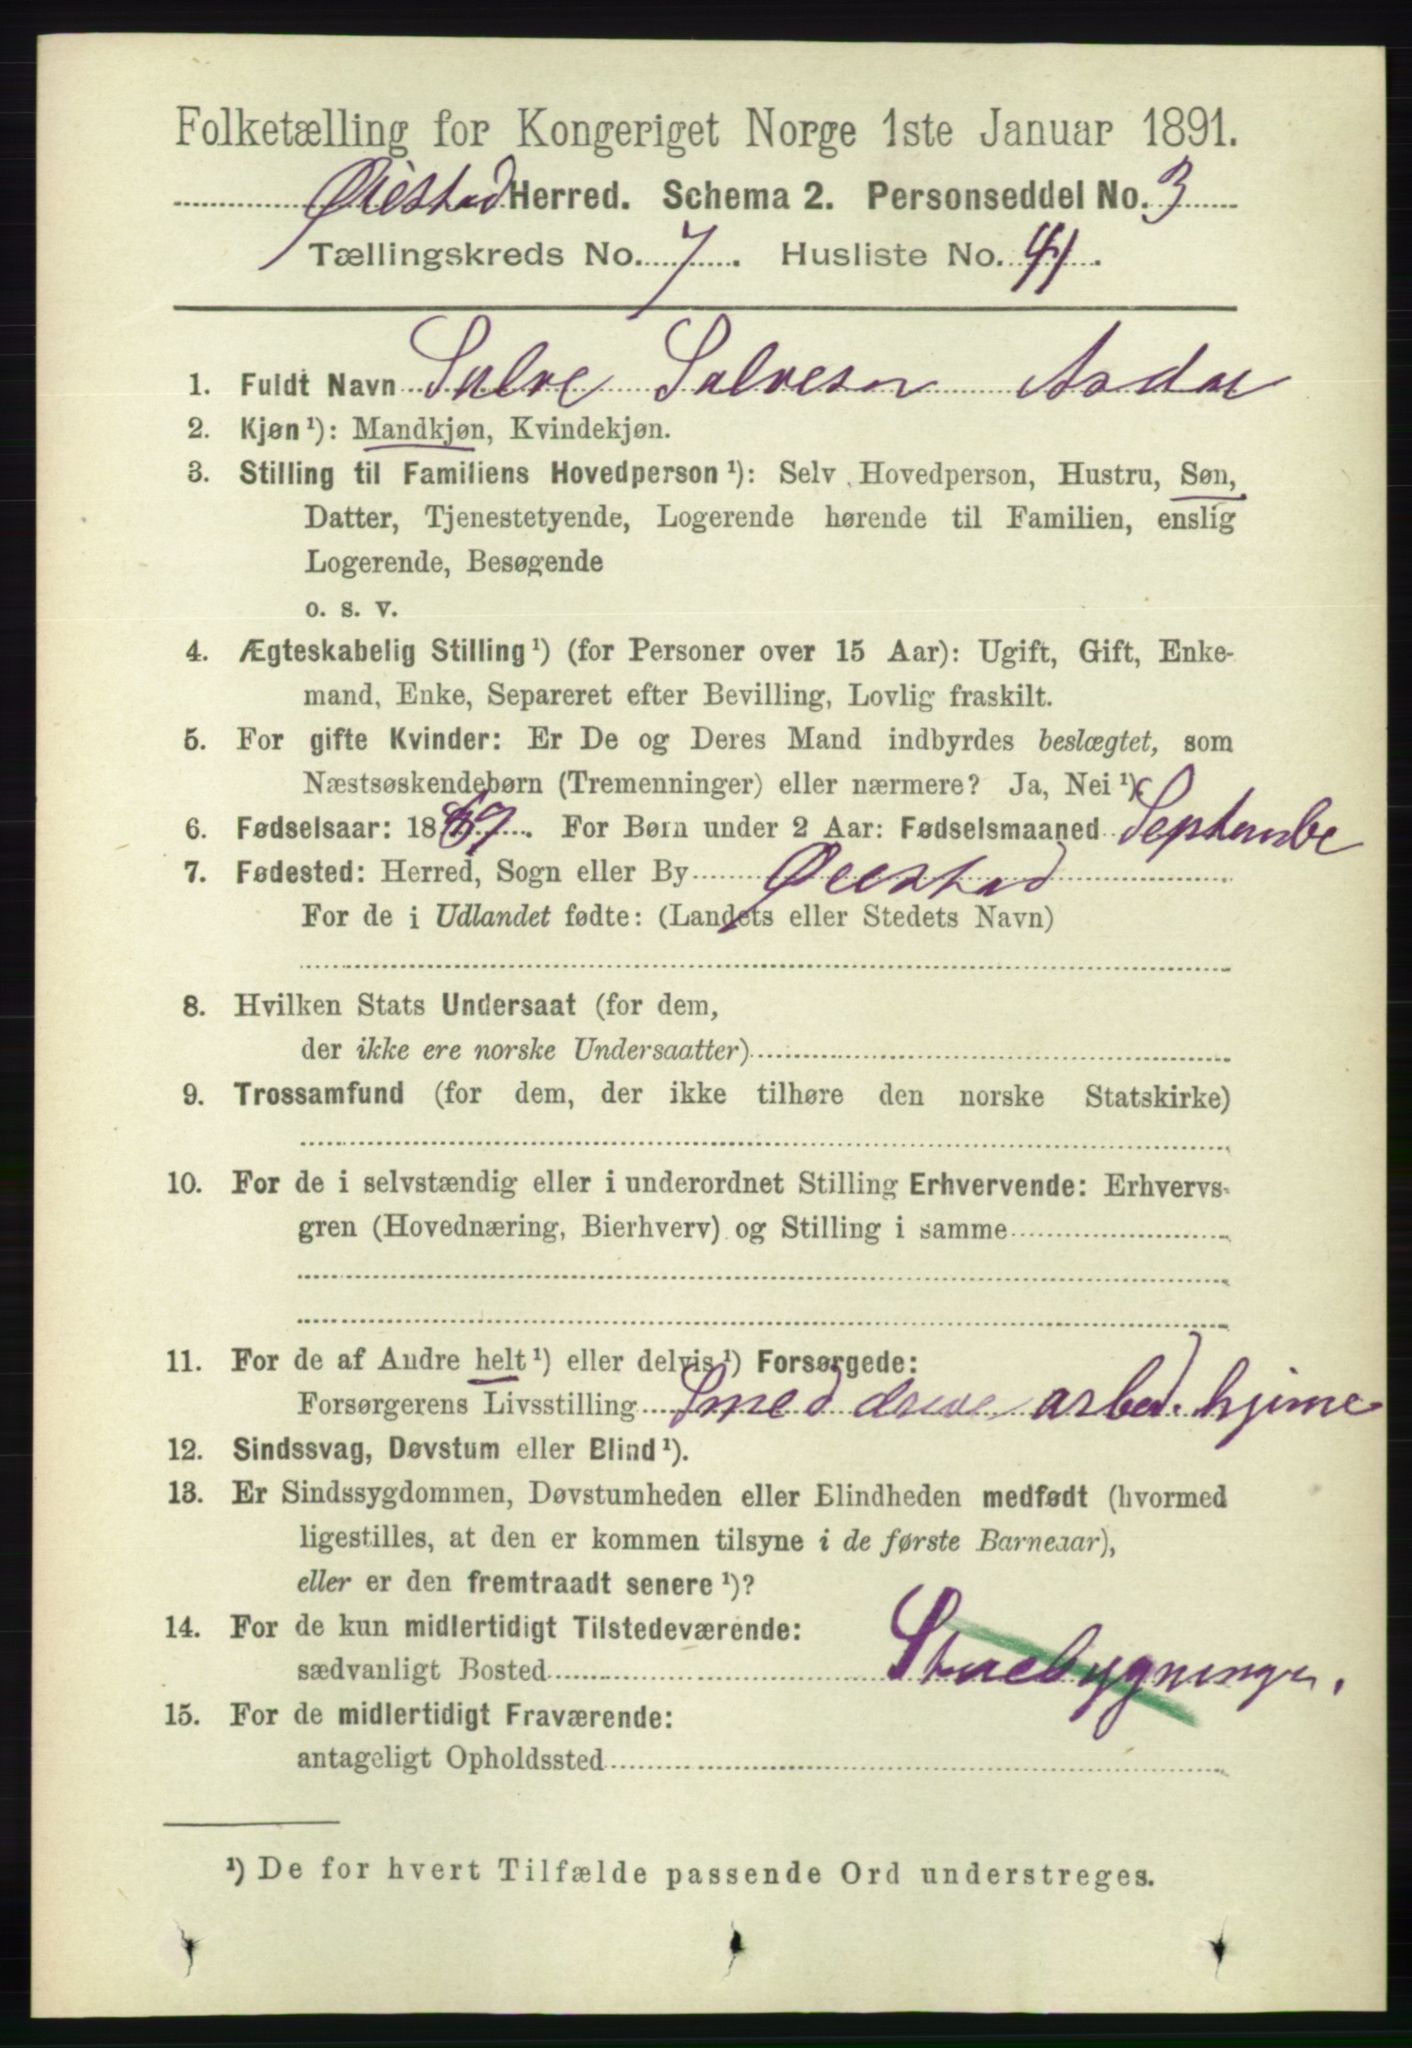 Folketælling for Kongeriget Norge 1ste Januar 1891.
Øiestad Herred. Schema 2. Personseddel No. 3
Tællingskreds No. 7. Husliste No. 41.
1. Fuldt Navn Salve Salvesen
2. Kjøn¹): Mandkjøn, Kvindekjøn.
3. Stilling til Familiens Hovedperson¹): Selv Hovedperson, Hustru, Søn,
Datter, Tjenestetyende, Logerende hørende til Familien, enslig
Logerende, Besøgende
o. s. v.
4. Ægteskabelig Stilling¹) (for Personer over 15 Aar): Ugift, Gift, Enke-
mand, Enke, Separeret efter Bevilling, Lovlig fraskilt.
5. For gifte Kvinder: Er De og Deres Mand indbyrdes beslægtet, som
Næstsøskendebørn (Tremenninger) eller nærmere? Ja, Nei¹)
6. Fødselsaar: 18. For Børn under 2 Aar: Fødselsmaaned Septembe
7. Fødested: Herred, Sogn eller By Øiestad
For de i Udlandet fødte: (Landets eller Stedets Navn)
8. Hvilken Stats Undersaat (for dem,
der ikke ere norske Undersaatter)
9. Trossamfund (for dem, der ikke tilhøre den norske Statskirke)
10. For de i selvstændig eller i underordnet Stilling Erhvervende: Erhvervs-
gren (Hovednæring, Bierhverv) og Stilling i samme
11. For de af Andre helt¹) eller delvis¹) Forsørgede:
Forsørgerens Livsstilling Smed arbed. hjime
12. Sindssvag, Døvstum eller Blind¹).
13. Er Sindssygdommen, Døvstumheden eller Blindheden medfødt (hvormed
ligestilles, at den er kommen tilsyne i de første Barneaar),
eller er den fremtraadt senere¹)?
14. For de kun midlertidigt Tilstedeværende:
sædvanligt Bosted
15. For de midlertidigt Fraværende:
antageligt Opholdssted
¹) De for hvert Tilfælde passende Ord understreges.